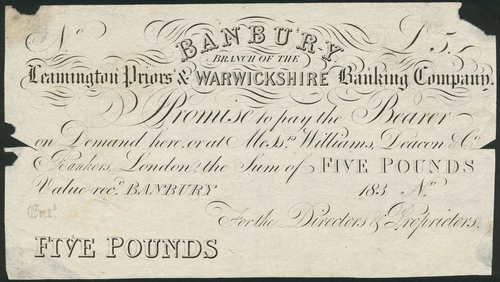 No
£5
BANBURY
BRANCH OF THE
Leamington Priors & WARWICKSHIRE Banking Company.
I Promise to pay the Bearer
on Demand here, or at Messrs Williams, Deacon & Co
Bankers, London, the Sum of FIVE POUNDS
Value recd BANBURY 183 No
Entd
For the Directors & Proprietors,
FIVE POUNDS